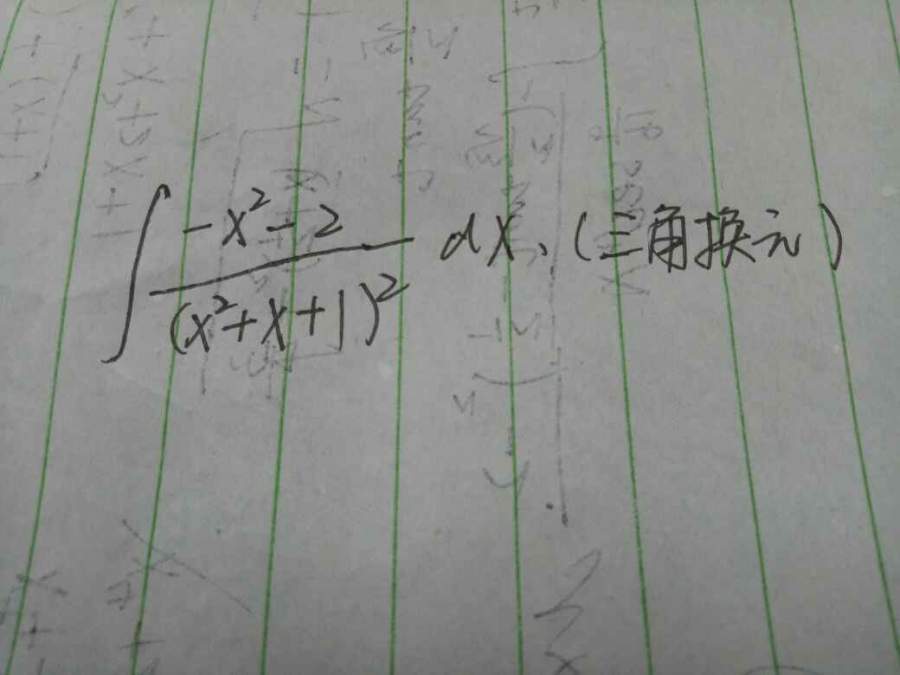 ∫ (-x²-2)/(x²+x+1)² dx、(三角换元)